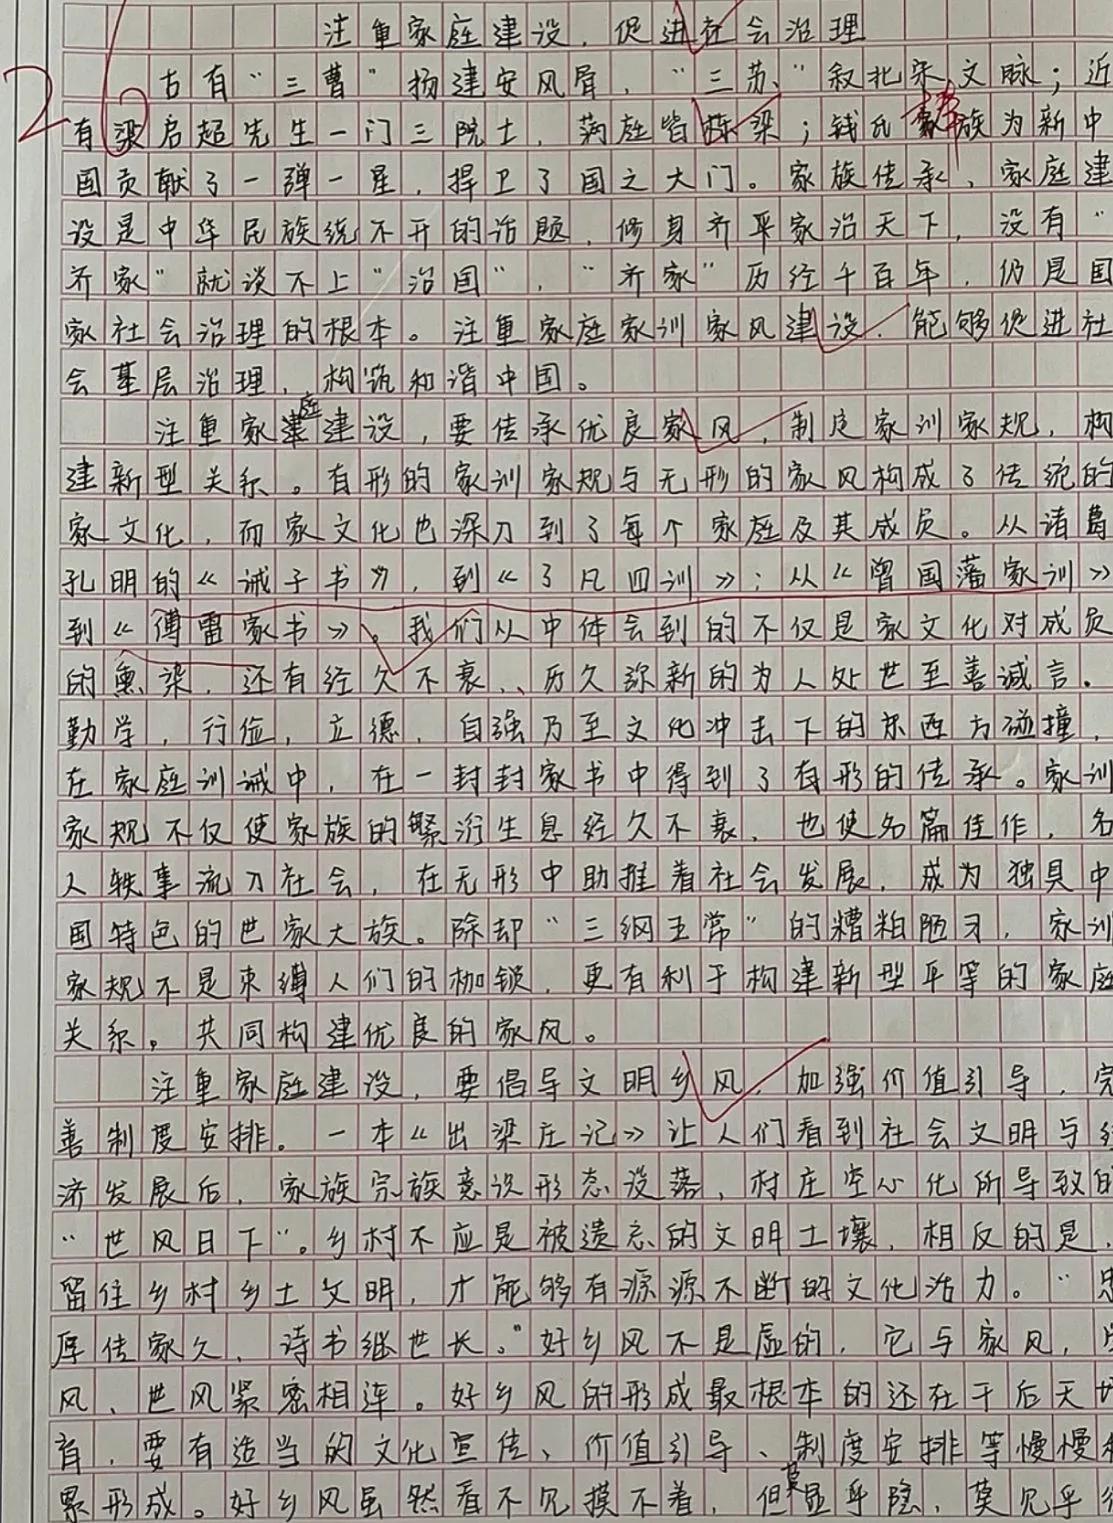 注重家庭建设，促进社会治理
古有“三曹”扬建安风骨，“三苏”叙北宋文脉；近
26
有梁启超先生一门三院士，满庭皆栋梁；钱氏家族为新中
国贡献了一弹一星，捍卫了国之大门。家族传承、家庭建
设是中华民族绕不开的话题，修身齐平家治天下，没有“
齐家”就谈不上“治国”，“齐家”历经千百年，仍是国
家社会治理的根本。注重家庭家训家风建设，能够促进社
会基层治理，构筑和谐中国。
注重家庭建设，要传承优良家风，制定家训家规，构
建新型关系。有形的家训家规与无形的家风构成了传统的
家文化，而家文化也深刀到了每个家庭及其成员。从诸葛
孔明的《诫子书》，到《了凡四训》；从《曾国藩家训》
到《傅雷家书》。我们从中体会到的不仅是家文化对成员
的熏染，还有经久不衰、历久弥新的为人处世至善诫言。
勤学，行俭，立德，自强乃至文化冲击下的东西方碰撞，
在家庭训诫中，在一封封家书中得到了有形的传承。家训
家规不仅使家族的繁衍生息经久不衰，也使名篇佳作，名
人轶事流刀社会，在无形中助推着社会发展，成为独具中
国特色的世家大族。除却“三纲五常”的糟粕陋习，家训
家规不是束缚人们的枷锁，更有利于构建新型平等的家庭
关系，共同构建优良的家风。
注重家庭建设，要倡导文明乡风，加强价值引导，完
善制度安排。一本《出梁庄记》让人们看到社会文明与经
济发展后，家族宗族意识形态没落，村庄空心化所导致的
“世风日下”。乡村不应是被遗忘的文明土壤，相反的是，
留住乡村乡土文明，才能够有源源不断的文化活力。“忠
厚传家久，诗书继世长。”好乡风不是虚的，它与家风，
风、世风紧密相连。好乡风的形成最根本的还在于后天培
育，要有适当的文化宣传、价值引导、制度安排等慢慢积
累形成。好乡风虽然看不见摸不着，但莫显乎隐，莫见乎